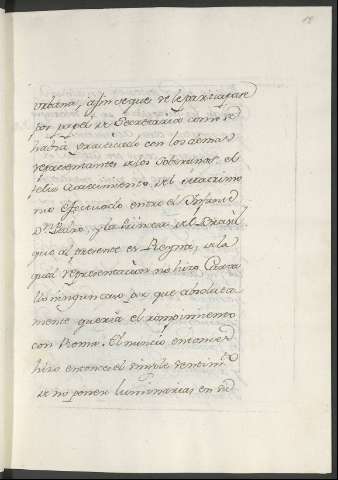 urbana, afin de que se le participase
por papel de Secretaría como se
había praticado con los demas
representantes a los Soberanos el
feliz Casamiento del matrimo
nio efectuado entre el Infante
Dn. Pedro, y la Princesa del Brasil
que al presente es Reyna, de la
qual representacion no hizo Carva
llo ningun caso por que absoluta
mente queria el rompimiento
con Roma. El nuncio entonces
hizo entonces el simple sentim.to
de no poner luminarias en su